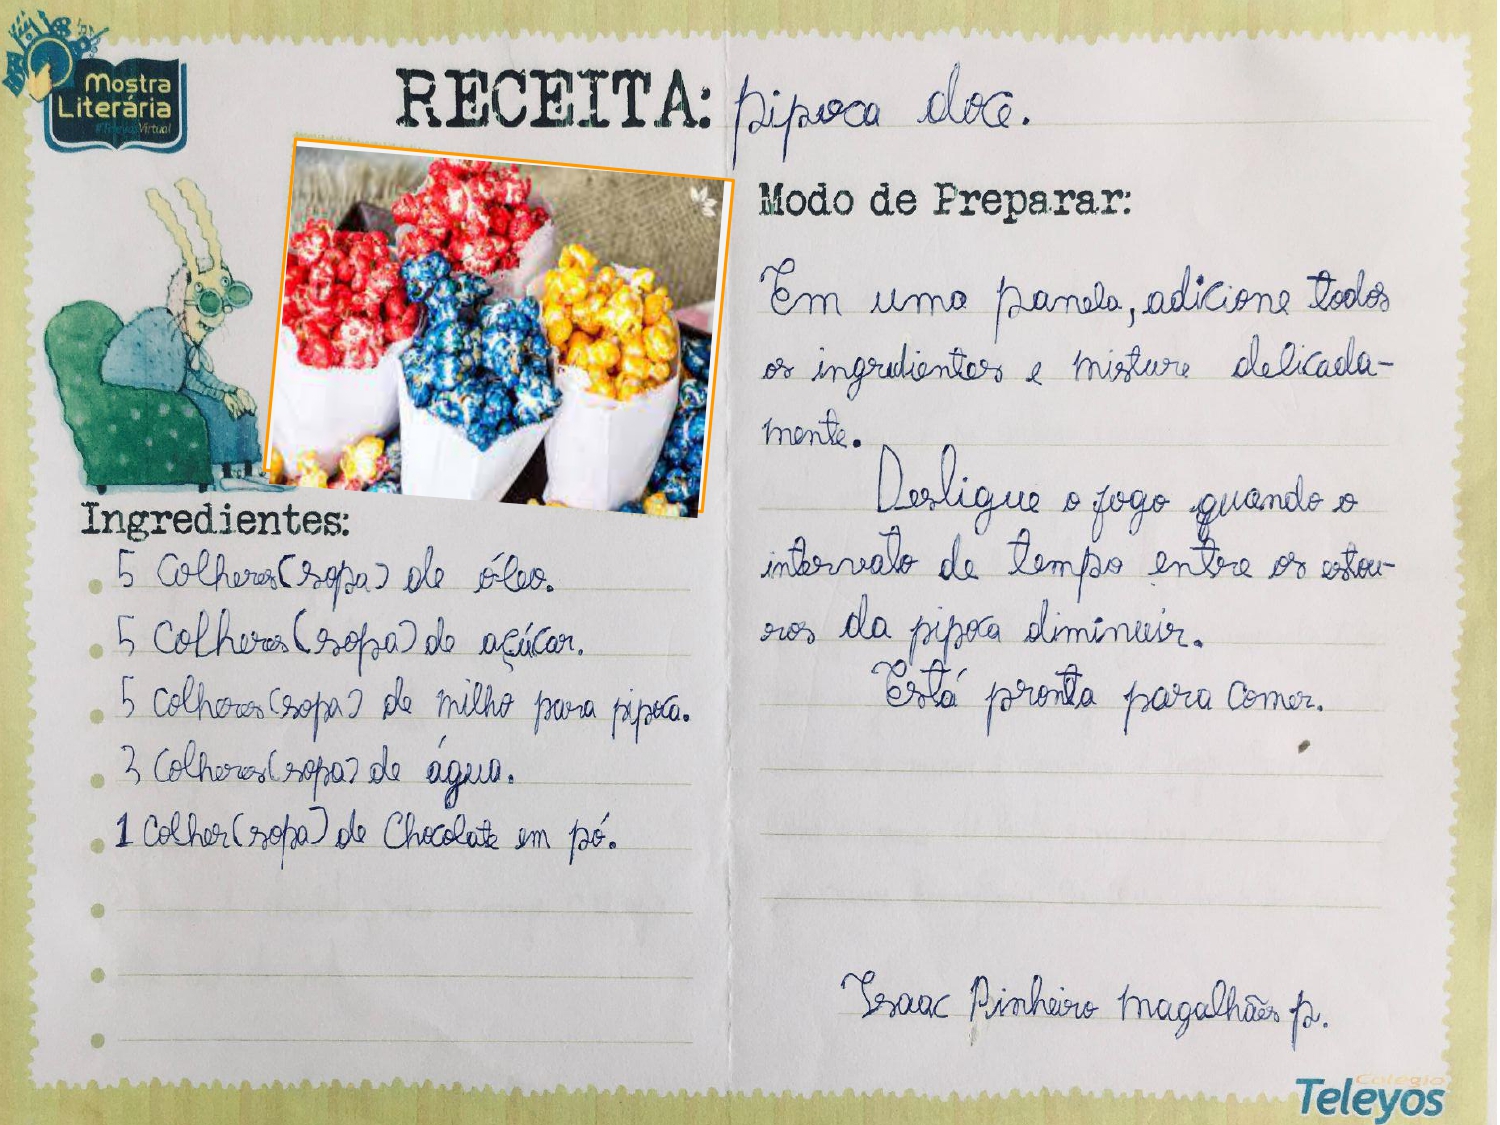 Mostra
Literária
#TeleyosVirtual
RECEITA: pipoca doce.
Ingredientes:
5 Colheres (sopa) de óleo.
5 Colheres (sopa) de açúcar.
5 Colheres (sopa) de milho para pipoca.
3 Colheres (sopa) de água.
1 Colher (sopa) de Chocolate em pó.
Modo de Preparar:
Em uma panela, adicione todos
os ingredientes e misture delicada-
mente.
Desligue o fogo quando o
intervalo de tempo entre os estou-
ros da pipoca diminuir.
Está pronta para comer.
Isaac Pinheiro Magalhães P.
Colégio
Teleyos